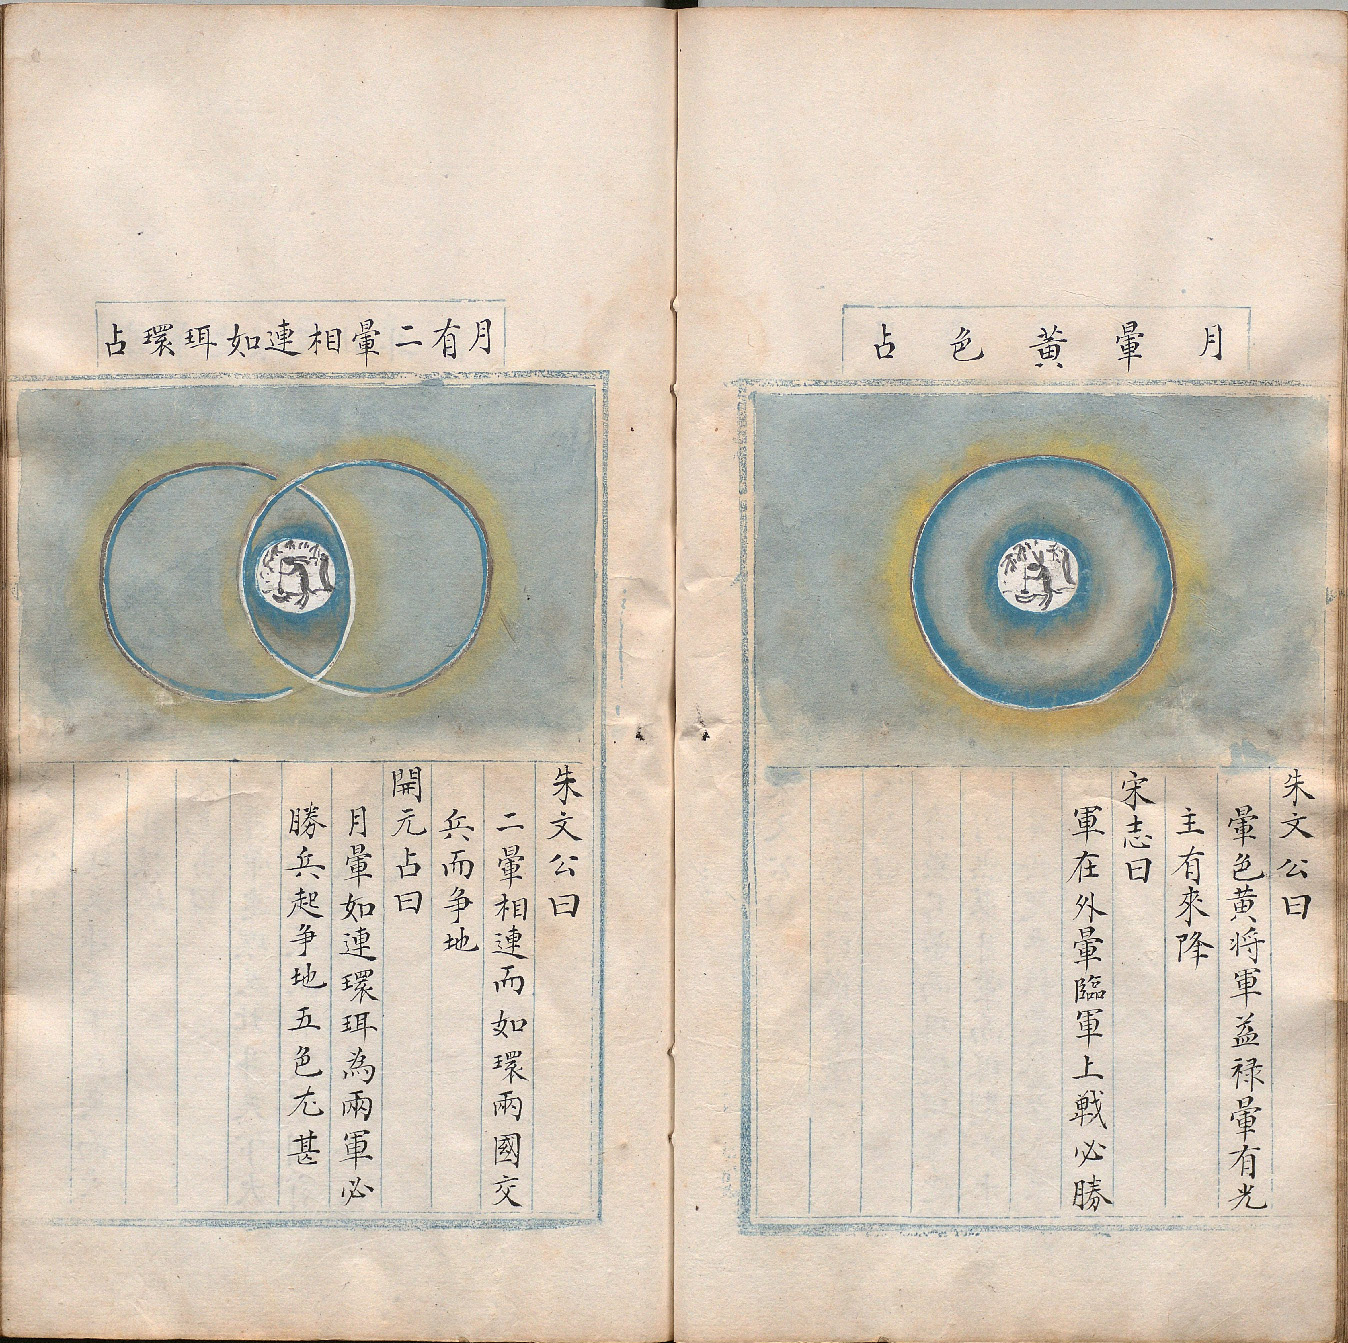 月暈黃色占
朱文公曰
暈色黃将軍益禄暈有光
主有來降
宋志曰
軍在外暈臨軍上戰必勝
月有二暈相連如珥環占
朱文公曰
二暈相連而如環兩國交
兵而争地
開元占曰
月暈如連環珥為兩軍必
勝兵起争地五色尤甚